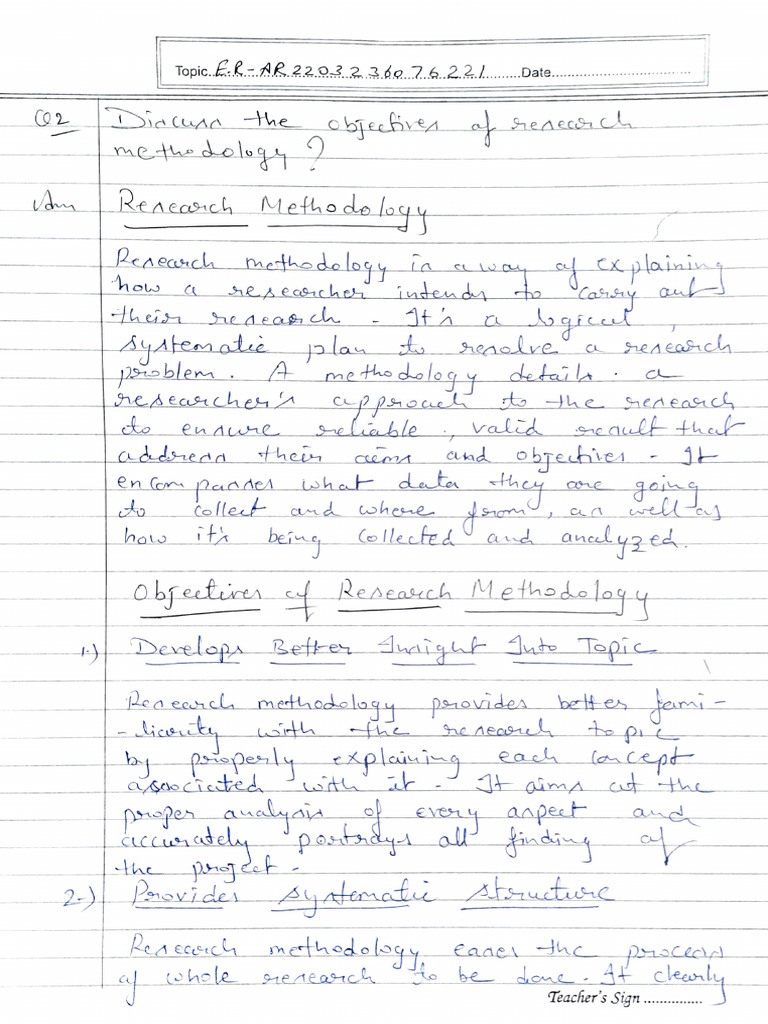 Topic..E.R-AR2203236076221.........Date.......................................
Q2 Discuss the objectives of research
methodology ?
Ans Research Methodology
Research methodology is a way of explaining
how a researcher intends to carry out
their research. It's a logical,
systematic plan to resolve a research
problem. A methodology details a
researcher's approach to the research
to ensure reliable, valid result that
address their aims and objectives. It
encompasses what data they are going
to collect and where from, as well as
how it's being collected and analyzed.
Objectives of Research Methodology
1.) Develops Better Insight Into Topic
Research methodology provides better fami-
-liarity with the research topic
by properly explaining each concept
associated with it. It aims at the
proper analysis of every aspect and
accurately portrays all finding of
the project.
2.) Provides Systematic Structure
Research methodology eases the process
of whole research to be done. It clearly
Teacher's Sign ...............